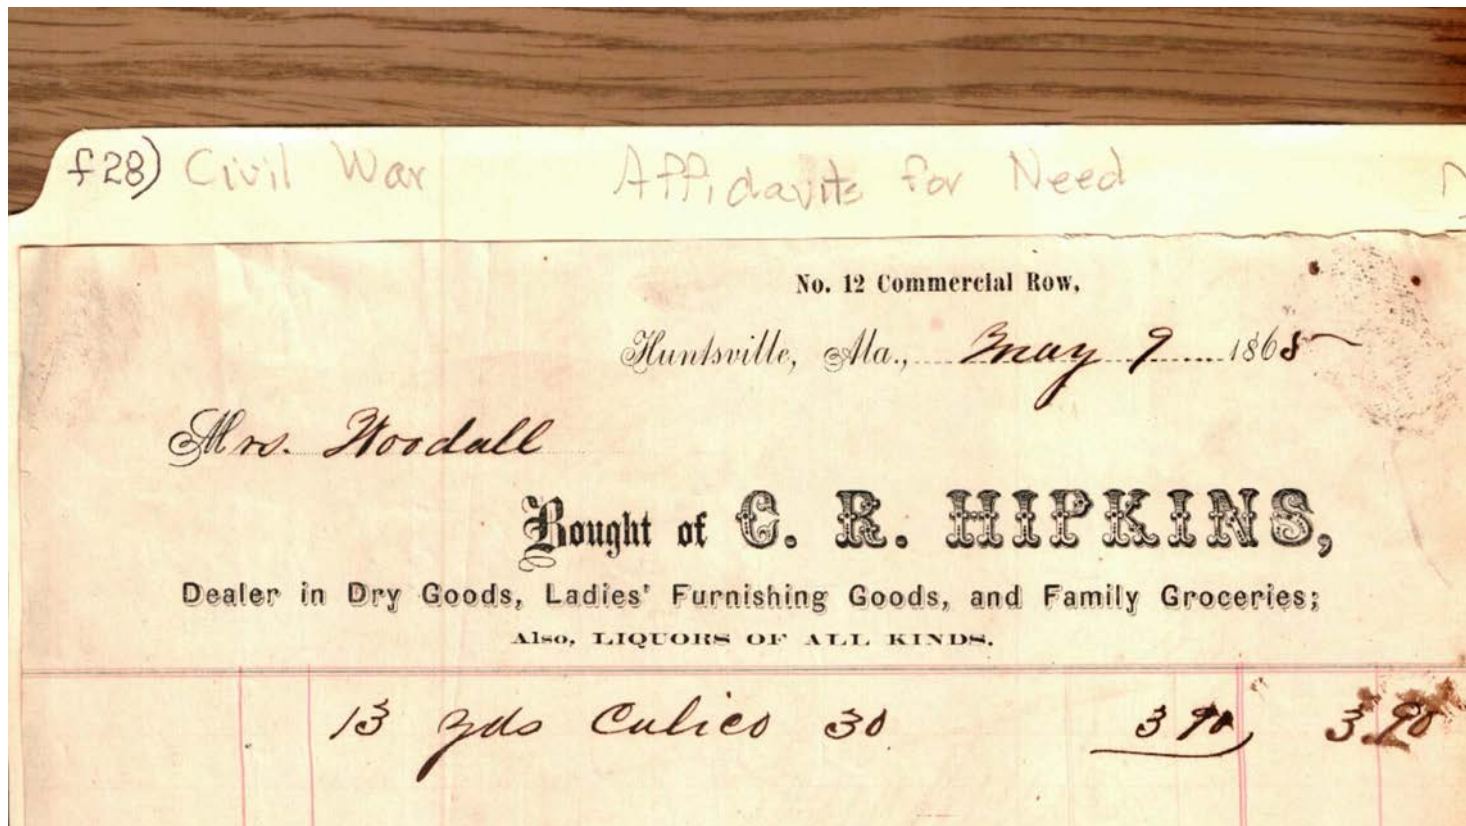 f28) Civil War Affidavits for Need
No. 12 Commercial Row,
Huntsville, Ala., May 9 1865
Mrs. Woodall
Bought of C. R. HIPKINS,
Dealer in Dry Goods, Ladies' Furnishing Goods, and Family Groceries;
Also, LIQUORS OF ALL KINDS.
13 yds Calico 30 3 90 3.90